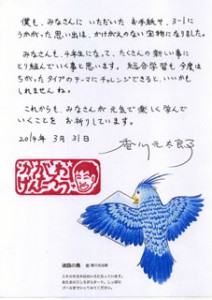 僕も、みなさんに いただいた お手紙や、3-1に
うかがった 思い出は、かけがえのない宝物になりました。
みなさんも、4年生になって、たくさんの新しい事に
とり組んでいく事と思います。総合学習も 今度は
ちがったタイプのテーマに チャレンジできると、いいかも
しれませんね。
これからも、みなさんが 元気で 楽しく 学んで
いくことを お祈りしています。
2014年 3月 31日
香川元太郎
かがわ
げんたろう